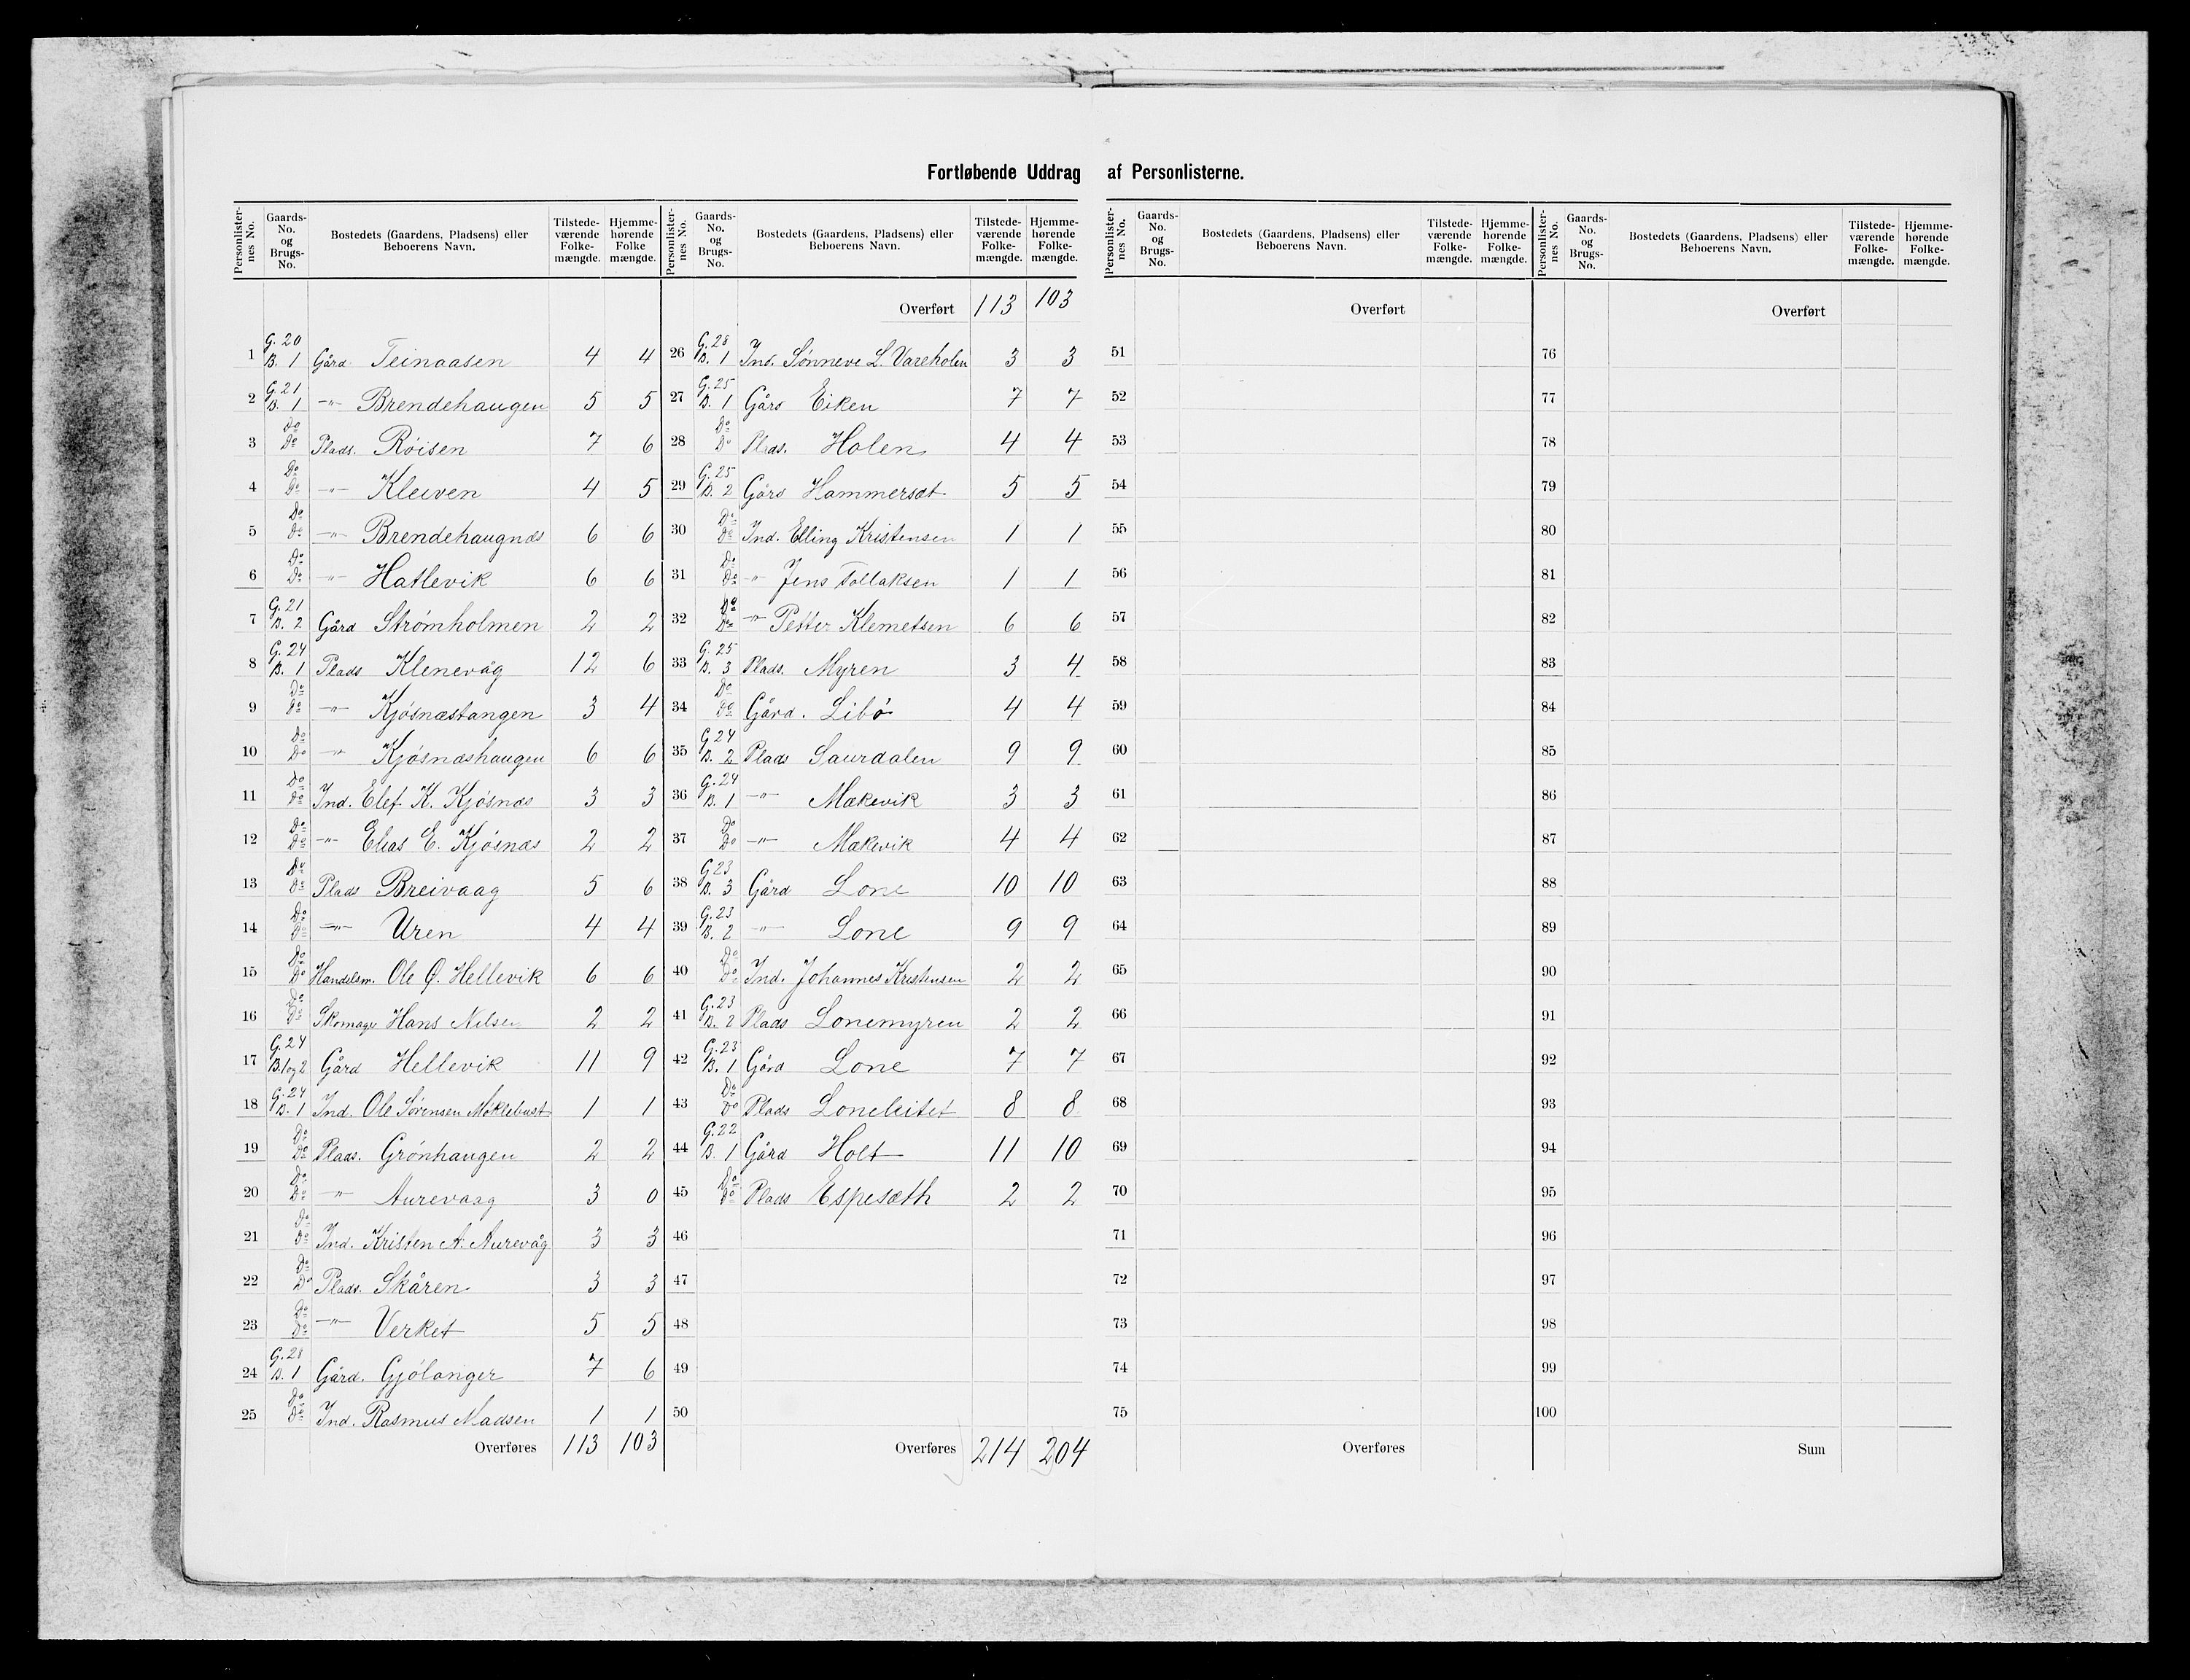 Fortløbende Uddrag af Personlisterne.
Personlisternes No. Gaards-No. og Brugs-No. Bostedets (Gaardens, Pladsens) eller Beboerens Navn. Tilstedeværende Folkemængde. Hjemmehørende Folkemængde.
1 G. 20 B. 1 Gård Teinaasen 4 4
2 G. 21 B. 1 -"- Brendehaugen 5 5
3 Do Do Plads. Røisen 7 6
4 Do Do -"- Kleiven 4 5
5 Do Do -"- Brendehaugnæs 6 6
6 Do Do -"- Hatlevik 6 6
7 G. 21 B. 2 Gård Strømholmen 2 2
8 G. 24 B. 1 Plads Klenevåg 12 6
9 Do Do -"- Kjøsnæstangen 3 4
10 Do Do -"- Kjøsnæshaugen 6 6
11 Do Do Ind. Elef K. Kjøsnæs 3 3
12 Do Do -"- Elias E. Kjøsnæs 2 2
13 Do Do Plads Breivaag 5 6
14 Do Do -"- Uren 4 4
15 Do Do Handelsm. Ole O. Hellevik 6 6
16 Do Do Skomager Hans Nilsen 2 2
17 G. 24 B. 1 og 2 Gård Hellevik 11 9
18 G. 24 B. 1 Ind. Ole Sørensen Møklebust 1 1
19 Do Do Plads. Grønhaugen 2 2
20 Do Do -"- Aurevaag 3 0
21 Do Do Ind. Kristen A. Aurevåg 3 3
22 Do Do Plads. Skåren 3 3
23 Do Do -"- Verket 5 5
24 G. 28 B. 1 Gård. Gjølanger 7 6
25 Do Do Ind. Rasmus Madsen 1 1
Overføres 113 103
Personlisternes No. Gaards-No. og Brugs-No. Bostedets (Gaardens, Pladsens) eller Beboerens Navn. Tilstedeværende Folkemængde. Hjemmehørende Folkemængde.
Overført 113 103
26 G. 28 B. 1 Ind. Sønneve L. Vareholen 3 3
27 G. 25 B. 1 Gård Eiken 7 7
28 Do Do Plads. Holen 4 4
29 G. 25 B. 2 Gård Hammersæt 5 5
30 Do Do Ind. Elling Kristensen 1 1
31 Do Do " Jens Tollaksen 1 1
32 Do Do -"- Petter Klemetsen 6 6
33 G. 25 B. 3 Plads. Myren 3 4
34 Do Do Gård. Libø 4 4
35 G. 24 B. 2 Plads Saurdalen 9 9
36 G. 24 B. 1 -"- Mækevik 3 3
37 Do Do -"- Mækevik 4 4
38 G. 23 B. 3 Gård Lone 10 10
39 G. 23 B. 2 -"- Lone 9 9
40 Do Do Ind. Johannes Kristensen 2 2
41 G. 23 B. 2 Plads Lonemyren 2 2
42 G. 23 B. 1 Gård Lone 7 7
43 Do Do Plads Loneleitet 8 8
44 G. 22 B. 1 Gård Holt 11 10
45 Do Do Plads Espesæth 2 2
46
47
48
49
50
Overføres 214 204
Personlisternes No. Gaards-No. og Brugs-No. Bostedets (Gaardens, Pladsens) eller Beboerens Navn. Tilstedeværende Folkemængde. Hjemmehørende Folkemængde.
Overført
51
52
53
54
55
56
57
58
59
60
61
62
63
64
65
66
67
68
69
70
71
72
73
74
75
Overføres
Personlisternes No. Gaards-No. og Brugs-No. Bostedets (Gaardens, Pladsens) eller Beboerens Navn. Tilstedeværende Folkemængde. Hjemmehørende Folkemængde.
Overført
76
77
78
79
80
81
82
83
84
85
86
87
88
89
90
91
92
93
94
95
96
97
98
99
100
Sum